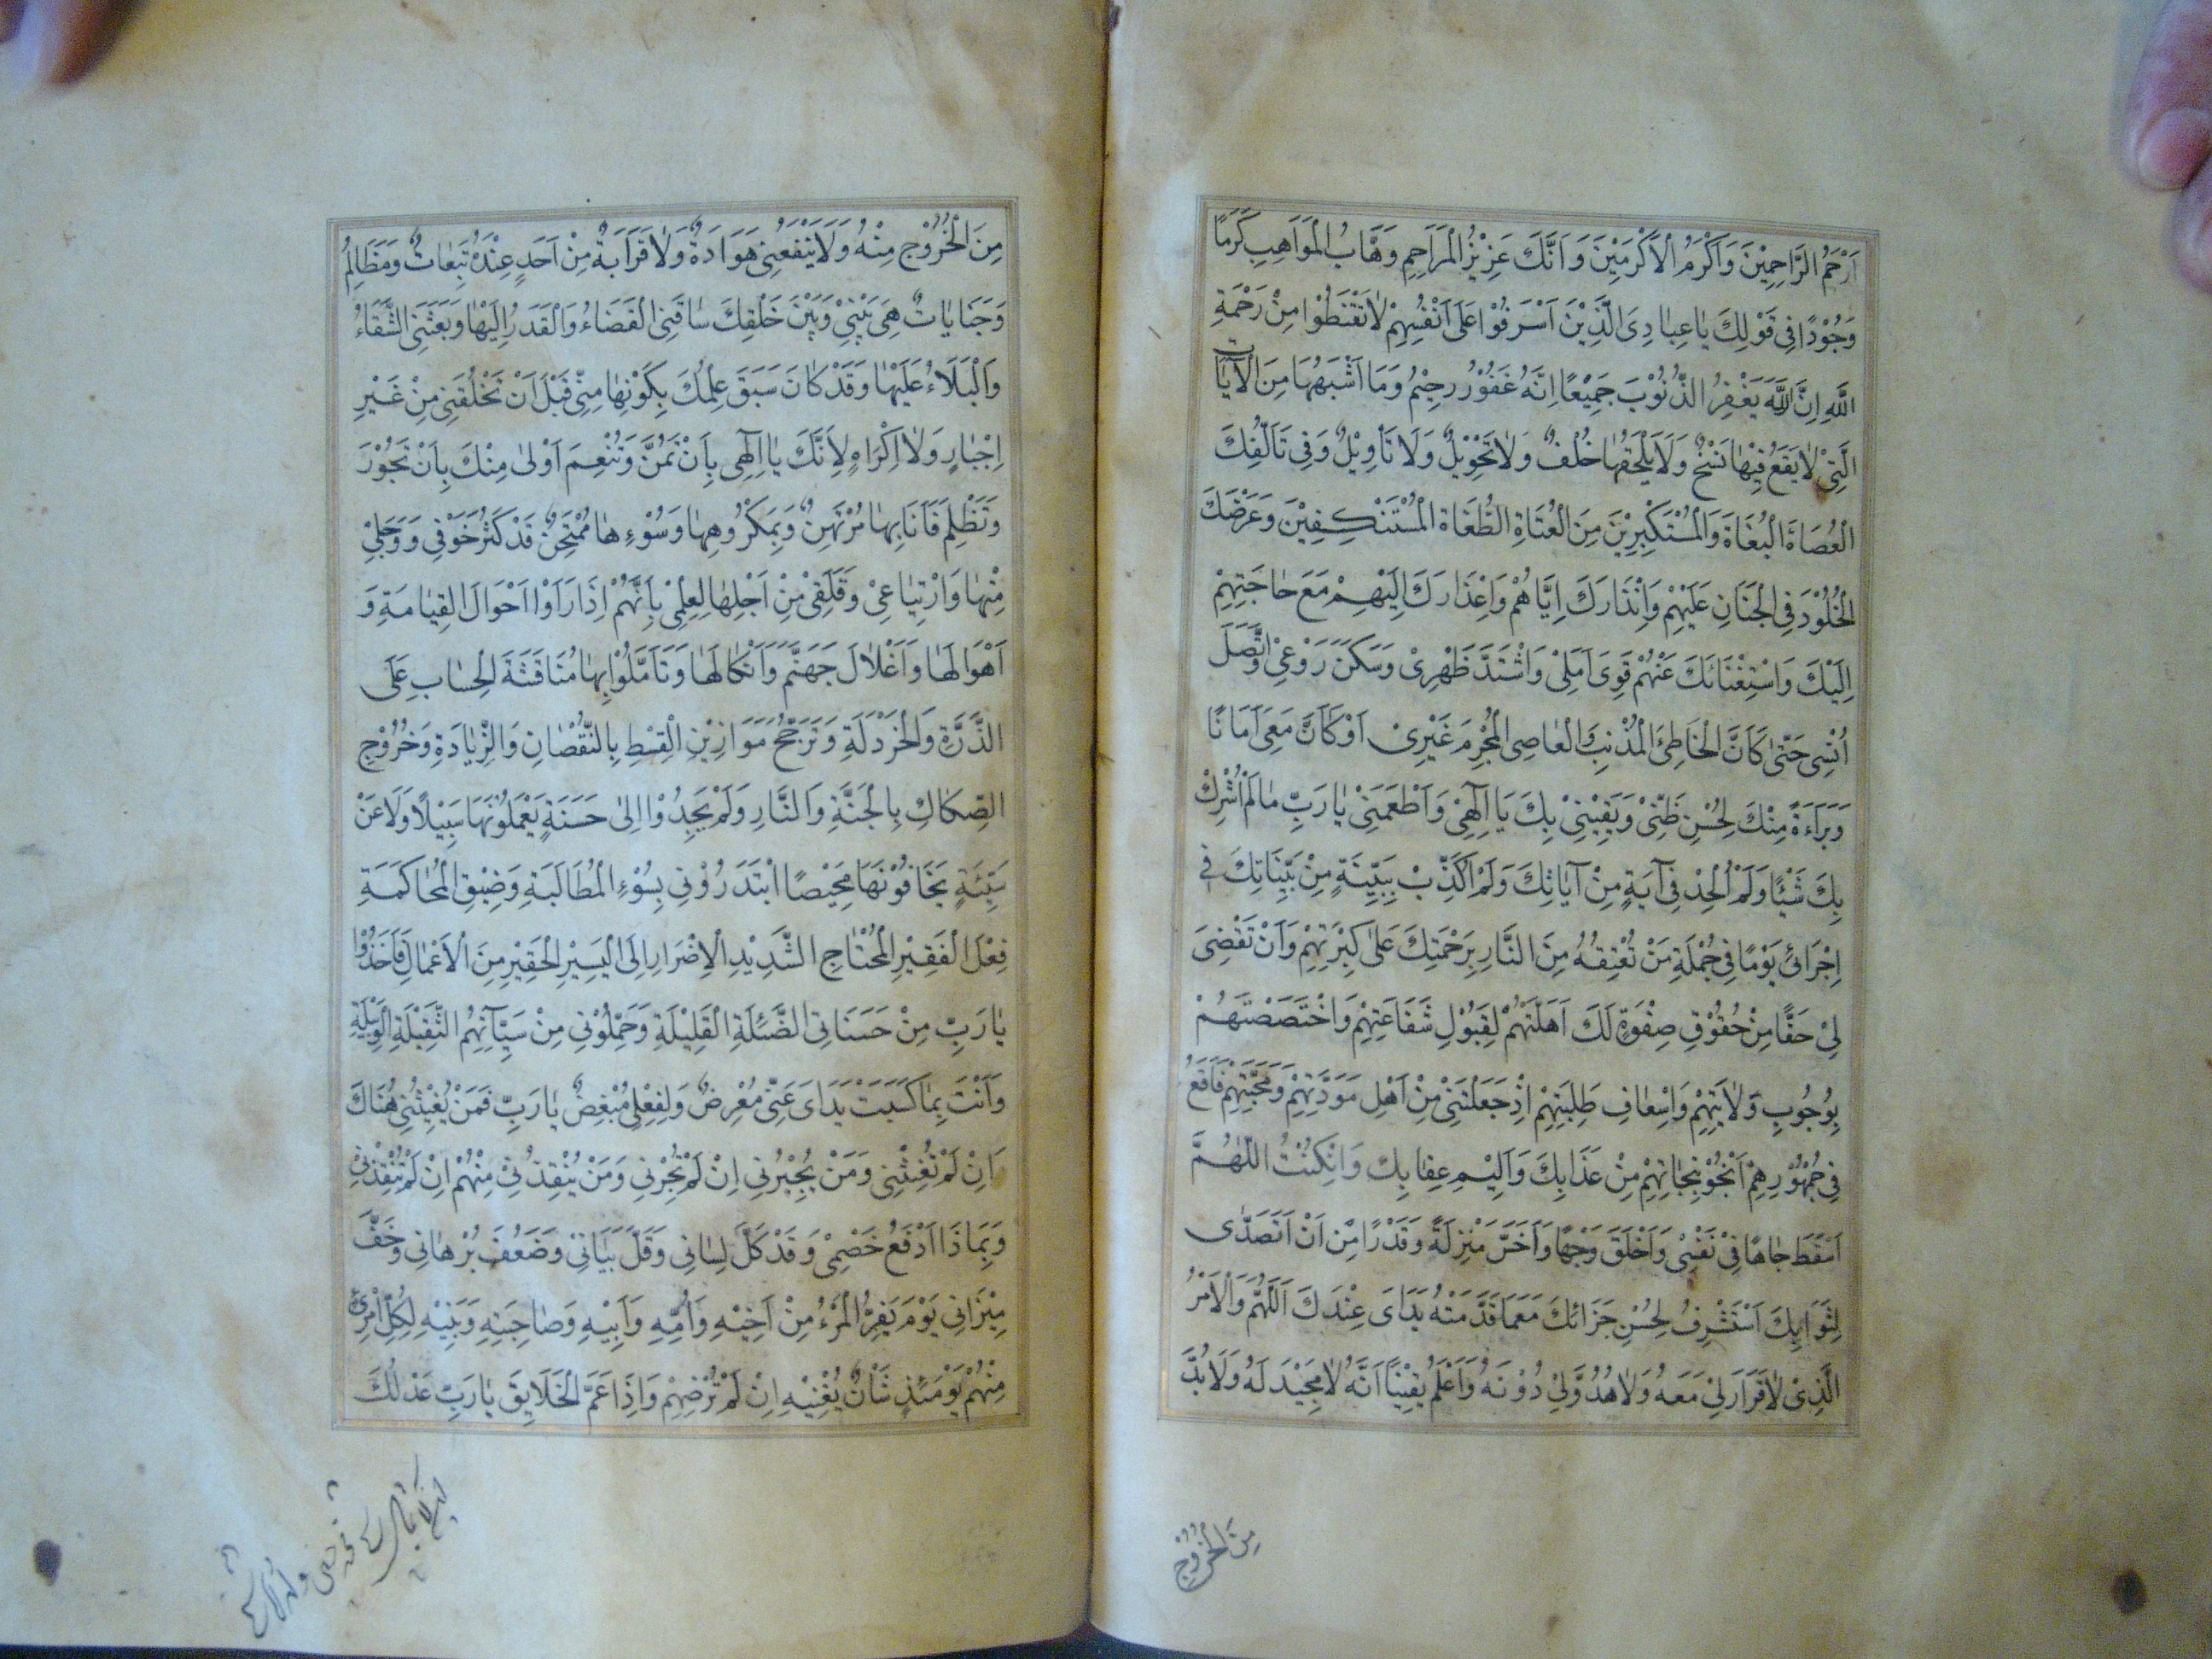 اَرْحَمُ الرَّاحِمِيْنَ وَاَكْرَمُ الْاَكْرَمِيْنَ وَاَنَّكَ عَزِيْزُ الْمَرَاحِمِ وَهَّابُ الْمَوَاهِبِ كَرَمًا
وَجُوْدًا فِي قَوْلِكَ يَا عِبَادِيَ الَّذِيْنَ اَسْرَفُوْا عَلَى اَنْفُسِهِمْ لَا تَقْنَطُوْا مِنْ رَحْمَةِ
اللَّهِ اِنَّ اللَّهَ يَغْفِرُ الذُّنُوْبَ جَمِيْعًا اِنَّهُ غَفُوْرٌ رحِيْمُ وَمَا اَشْبَهَهَا مِنَ الْآيَاتِ
الَّتِيْ لَا يَقَعُ فِيْهَا نَسْخٌ وَلَا يَلْحَقُهَا خُلْفٌ وَلَا تَحْوِيْلٌ وَلَا تَأْوِيْلٌ وَفِي تَاَلُّفِكَ
الْعُصَاةَ الْبُغَاةَ وَالْمُسْتَكْبِرِيْنَ مِنَ الْعُتَاةِ الطُّغَاةِ الْمُسْتَنْكِفِيْنَ وَعَرْضِكَ
الْخُلُوْدَ فِي الْجَنَانِ عَلَيْهِمْ وَاِنْذَارَكَ اِيَّاهُمْ وَاِعْذَارَكَ اِلَيْهِمْ مَعَ حَاجَتِهِمْ
اِلَيْكَ وَاسْتِغْنَائِكَ عَنْهُمْ قَوِيَ اَمَلِيْ وَاشْتَدَّ ظَهْرِيْ وَسَكَنَ رَوْعِيْ وَاتَّصَلَ
اُنْسِي حَتَّى كَاَنَّ الْخَاطِئَ الْمُذْنِبَ وَالْعَاصِي الْمُجْرِمَ غَيْرِيْ اَوْ كَاَنَّ مَعِيَ اَمَانًا
وَبَرَاءَةً مِنْكَ لِحُسْنِ ظَنِّيْ وَيَقِيْنِيْ بِكَ يَا اِلٰهِيْ وَاَطْعَمَنِيْ يَا رَبِّ مَا لَمْ اُشْرِكْ
بِكَ شَيْئًا وَلَمْ اُلْحِدْ فِي آيَةٍ مِنْ آيَاتِكَ وَلَمْ اُكَذِّبْ بِبَيِّنَةٍ مِنْ بَيِّنَاتِكَ فِي
اِجْرَائِيْ يَوْمًا فِي جُمْلَةِ مَنْ تُعْتِقُهُ مِنَ النَّارِ بِرَحْمَتِكَ عَلَى كِبْرَتِهِمْ وَاَنْ تَقْضِيَ
لِيْ حَقًّا مِنْ حُقُوْقِ صِفْوَةٍ لَكَ اَهَّلْتَهُمْ لِقَبُوْلِ شَفَاعَتِهِمْ وَاخْتَصَصْتَهُمْ
بِوُجُوبِ وَلَايَتِهِمْ وَاِسْعَافِ طَلِبَتِهِمْ اِذْ جَعَلْتَنِيْ مِنْ اَهْلِ مَوَدَّتِهِمْ وَمَحَبَّتِهِمْ فَاَقَعُ
فِي جُمْهُوْرِهِمْ اَنْجُوْ بِنَجَاتِهِمْ مِنْ عَذَابِكَ وَاَلِيْمِ عِقَابِكَ وَاِنْ كُنْتُ اللّٰهُمَّ
اَسْقَطَ جَاهًا فِيْ نَفْسِيْ وَاَخْلَقَ وَجْهًا وَاَخَسَّ مَنْزِلَةً وَقَدْرًا مِنْ اَنْ اَتَصَدَّى
لِثَوَابِكَ اَسْتَشْرِفُ لِحُسْنِ جَزَائِكَ مَعَ مَا قَدَّمَتْهُ يَدَايَ عِنْدَكَ اَللّٰهُمَّ وَالْاَمْرُ
الَّذِيْ لَا قَرَارَ لِيْ مَعَهُ وَلَا هُدُوَّ لِيْ دُوْنَهُ وَاَعْلَمُ يَقِيْنًا اَنَّهُ لَا مَحِيْدَ لَهُ وَلَا بُدَّ
مِنَ الْخُرُوْجِ
مِنَ الْخُرُوْجِ مِنْهُ وَلَا يَنْفَعُنِي هَوَادَةٌ وَلَا قَرَابَةٌ مِنْ اَحَدٍ عِنْدَهُ تَبِعَاتٌ وَمَظَالِمُ
وَجَنَايَاتٌ هِيَ بَيْنِيْ وَبَيْنَ خَلْقِكَ سَاقَنِي الْقَضَاءُ وَالْقَدَرُ اِلَيْهَا وَبَعَثَنِي الشَّقَاءُ
وَالْبَلَاءُ عَلَيْهَا وَقَدْ كَانَ سَبَقَ عِلْمُكَ بِكَوْنِهَا مِنِّي قَبْلَ اَنْ تَخْلُقَنِي مِنْ غَيْرِ
اِجْبَارٍ وَلَا اِكْرَاهٍ لِاَنَّكَ يَا اِلٰهِي بِاَنْ تَمُنَّ وَتُنْعِمَ اَوْلٰى مِنْكَ بِاَنْ تَجُوْرَ
وَتَظْلِمَ فَاَنَا بِهَا مُرْتَهَنٌ وَبِمَكْرُوهِهَا وَسُوْءِهَا مُمْتَحَنٌ قَدْ كَثُرَ خَوْفِي وَوَجَلِيْ
مِنْهَا وَارْتِيَاعِيْ وَقَلَقِيْ مِنْ اَجْلِهَا لِعِلْمِيْ بِاَنَّهُمْ اِذَا رَاَوْا اَحْوَالَ الْقِيَامَةِ وَ
اَهْوَالَهَا وَاَغْلَالَ جَهَنَّمَ وَاَنْكَالَهَا وَتَاَمَّلُوْا بِهَا مُنَاقَشَةَ الْحِسَابِ عَلَى
الذَّرَّةِ وَالْخَرْدَلَةِ وَتَرَجُّحَ مَوَازِيْنِ الْقِسْطِ بِالنُّقْصَانِ وَالزِّيَادَةِ وَخُرُوْجِ
الصِّكَاكِ بِالْجَنَّةِ وَالنَّارِ وَلَمْ يَجِدُوْا اِلٰى حَسَنَةٍ يَعْمَلُوْنَهَا سَبِيْلًا وَلَا عَنْ
سَيِّئَةٍ يَخَافُوْنَهَا مَحِيْصًا ابْتَدَرُوْنِي بِسُوْءِ الْمُطَالَبَةِ وَضِيْقِ الْمُحَاكَمَةِ
فِعْلَ الْفَقِيْرِ الْمُحْتَاجِ الشَّدِيْدِ الْاِضْرَارِ اِلَى الْيَسِيْرِ الْحَقِيْرِ مِنَ الْاَعْمَالِ فَاَخَذُوْا
يَا رَبِّ مِنْ حَسَنَاتِي الضَّئِلَةِ الْقَلِيْلَةِ وَحَمَّلُوْنِي مِنْ سَيِّآتِهِمُ الثَّقِيْلَةِ الْوَبِيْلَةِ
وَاَنْتَ بِمَا كَسَبَتْ يَدَايَ عَنِّي مُعْرِضٌ وَلِفِعْلِي مُبْغِضٌ يَا رَبِّ فَمَنْ يُغِيْثُنِي هُنَاكَ
اِنْ لَمْ تُغِثْنِي وَمَنْ يُجِيْرُنِي اِنْ لَمْ تُجِرْنِي وَمَنْ يُنْقِذُنِيْ مِنْهُمْ اِنْ لَمْ تُنْقِذْنِيْ
وَبِمَاذَا اَدْفَعُ خَصْمِيْ وَقَدْ كَلَّ لِسَانِي وَقَلَّ بَيَانِيْ وَضَعُفَ بُرْهَانِي وَخَفَّ
مِيْزَانِي يَوْمَ يَفِرُّ الْمَرْءُ مِنْ اَخِيْهِ وَاُمِّهِ وَاَبِيْهِ وَصَاحِبَتِهِ وَبَنِيْهِ لِكُلِّ امْرِئٍ
مِنْهُمْ يَوْمَئِذٍ شَاْنٌ يُغْنِيْهِ اِنْ لَمْ تُرْضِهِمْ وَاِذَا عَمَّ الْخَلَايِقَ يَا رَبِّ عَدْلُكَ